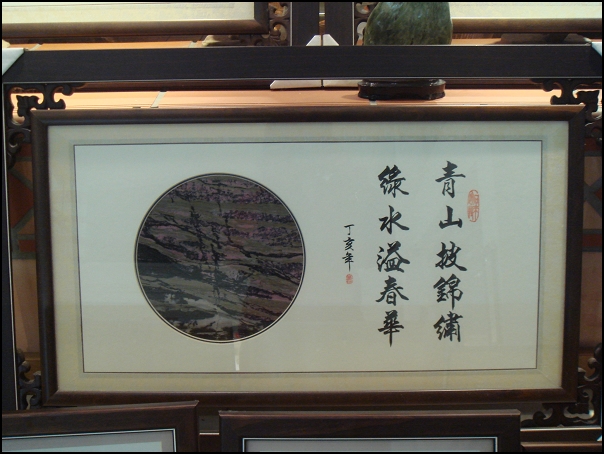 青山披錦繡
綠水溢春華
丁亥年